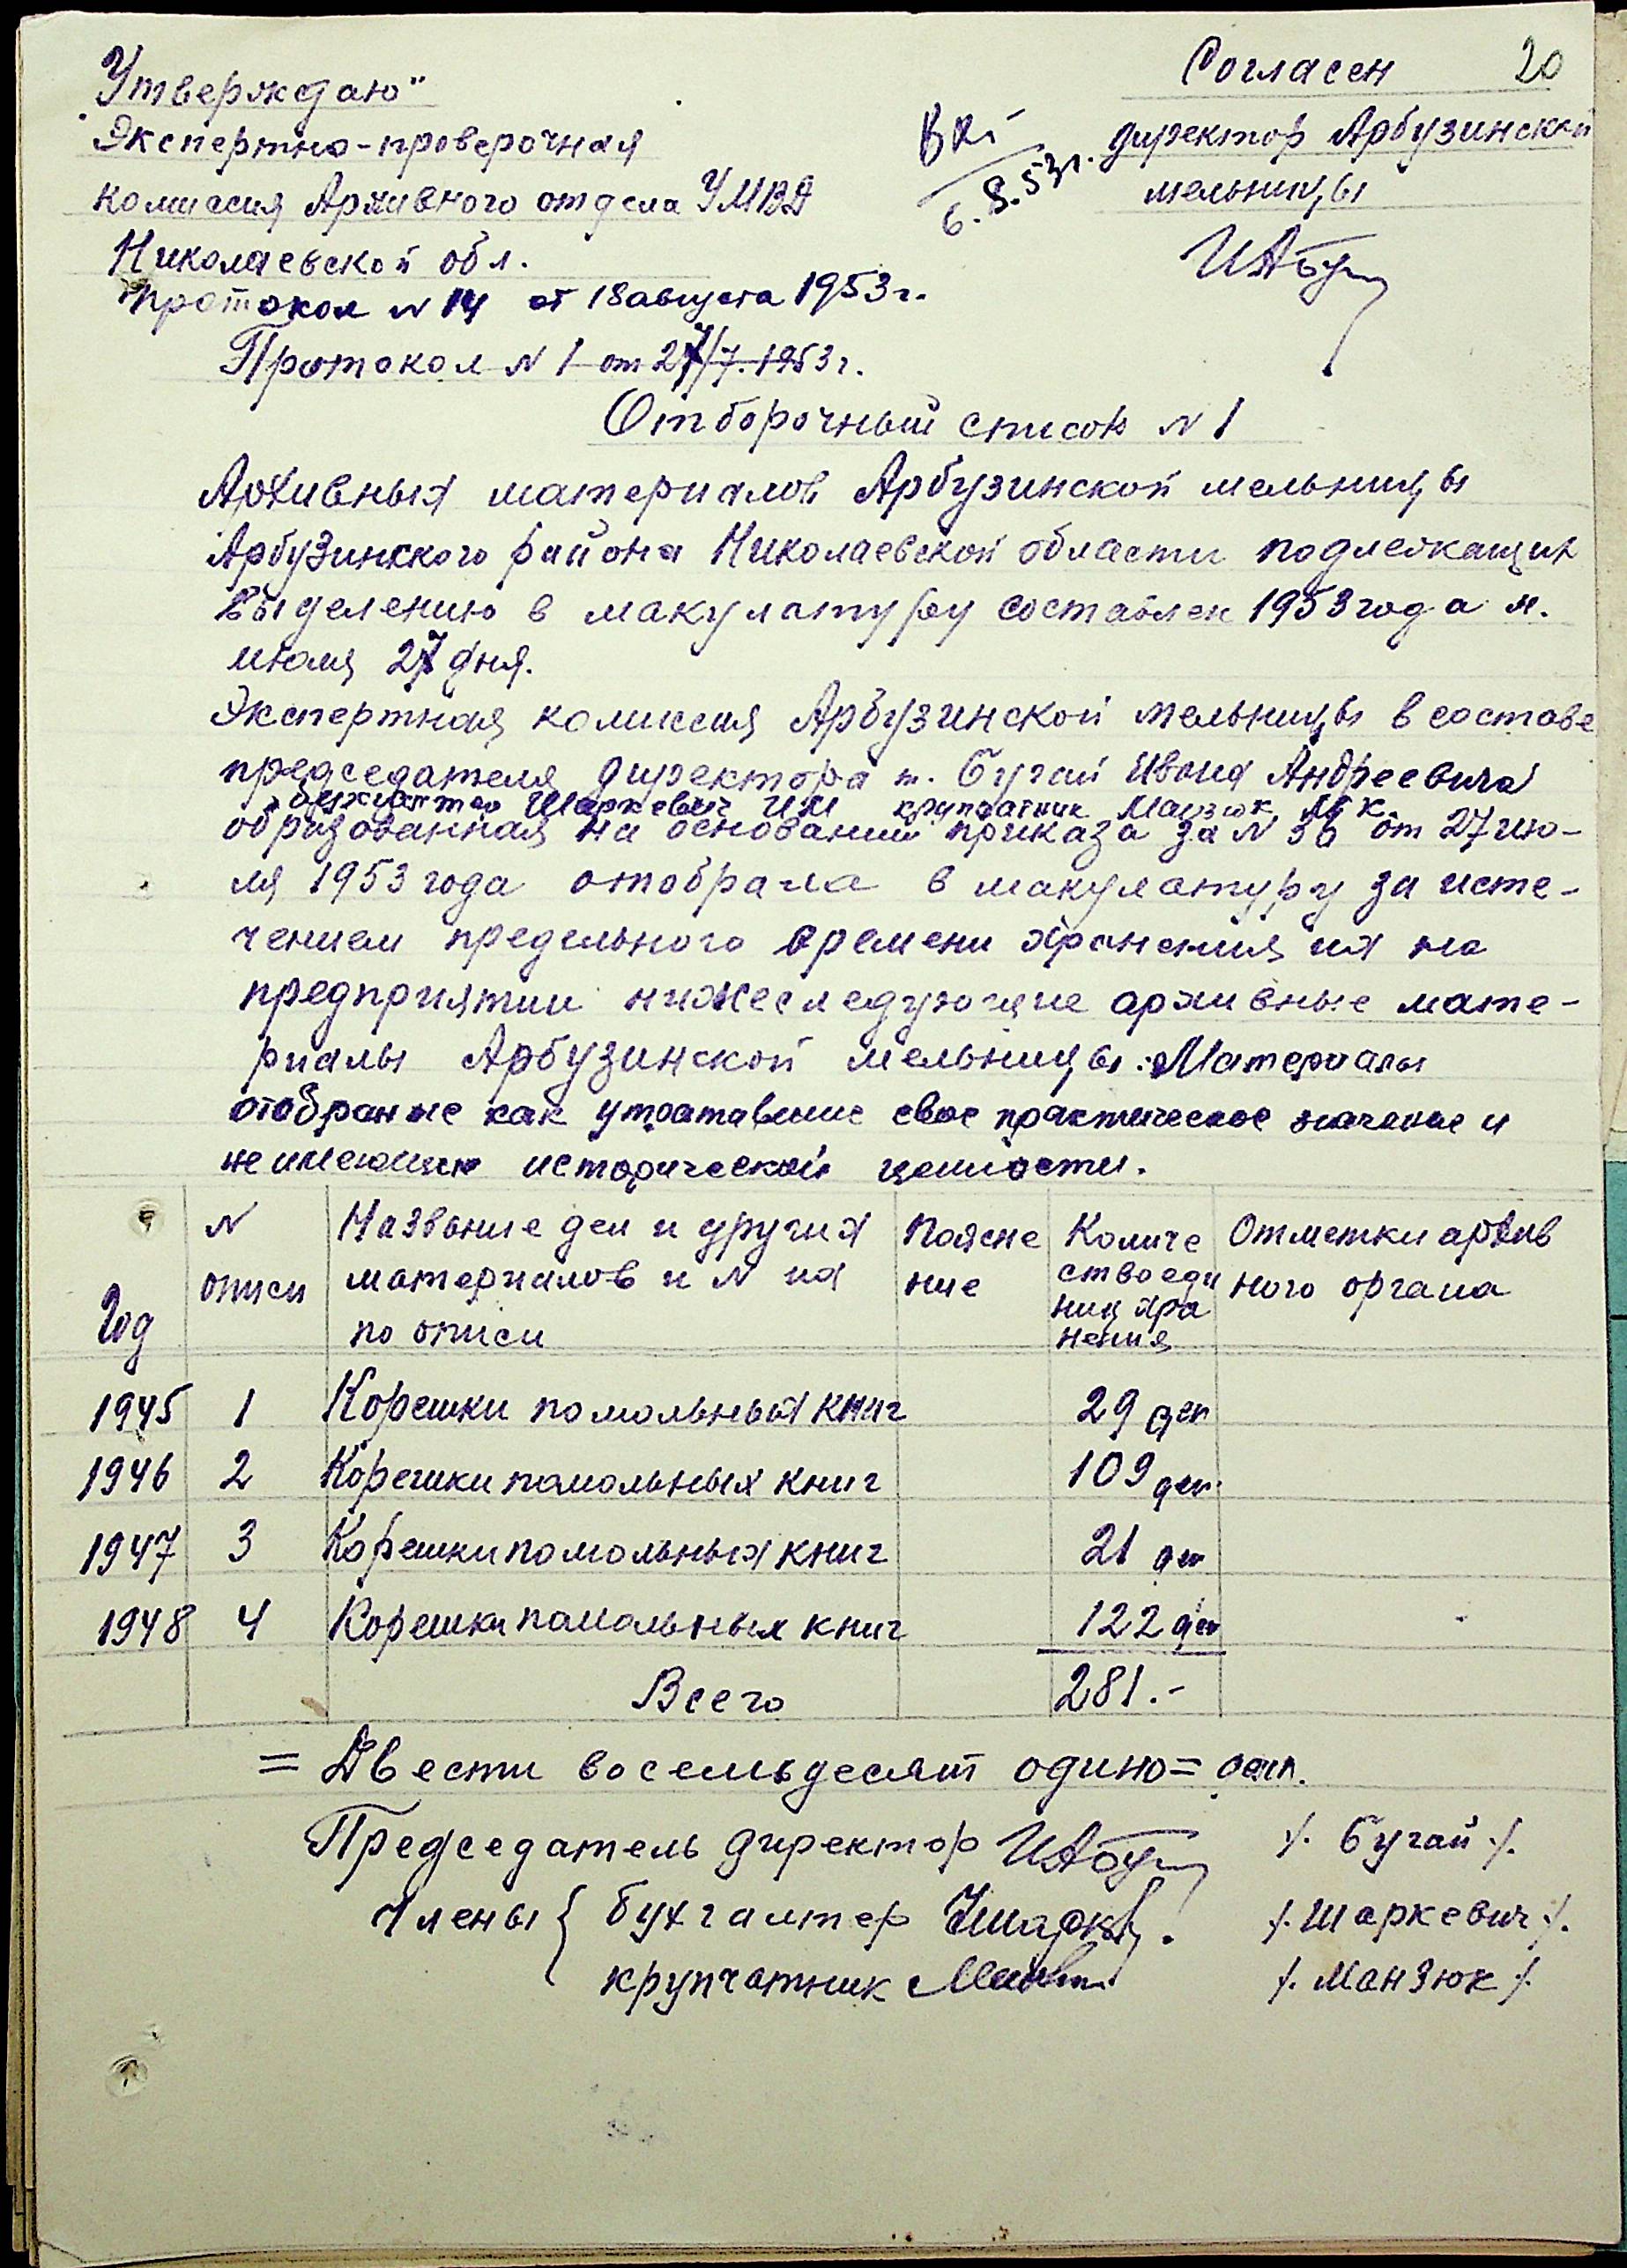 Утверждаю"
Экспертно-проверочная
комиссия Архивного отдела УМВД
Николаевской обл.
протокол N 14 от 18 августа 1953 г.
Протокол N 1 от 27/7. 1953 г.
Согласен 20
директор Арбузинской
мельницы
6.8.53г.
Отборочный список N 1
Архивных материалов Арбузинской мельницы
Арбузинского района Николаевской области подлежащих
выделению в макулатуру составлен 1953 года м.
июля 27 дня.
Экспертная комиссия Арбузинской мельницы в составе
председателя директора т. Бугай Ивана Андреевича
Шаркевич И М крупчатник Манзюк М К
образованная на основании приказа за N 36 от 27 ию-
ля 1953 года отобрала в макулатуру за исте-
чением предельного времени хранения их на
предприятии нижеследующие архивные мате-
риалы Арбузинской мельницы. Материалы
отобранные как утратавшие свое практическое значение и
не имеющих исторической ценности.
Год N описи Название дел и других материалов и N их по описи Поясне ние Количе ство еди ниц хра нения Отметки архив ного органа
1945 1 Корешки помольных книг 29 дел
1946 2 Корешки помольных книг 109 дел
1947 3 Корешки помольных книг 21 дел
1948 4 Корешки помольных книг 122 дел
Всего 281.-
= Двести восемьдесят одино= дел.
Председатель директор ·/. Бугай ·/.
Члены { бухгалтер ·/. Шаркевич ·/.
крупчатник ·/. Манзюк ·/.